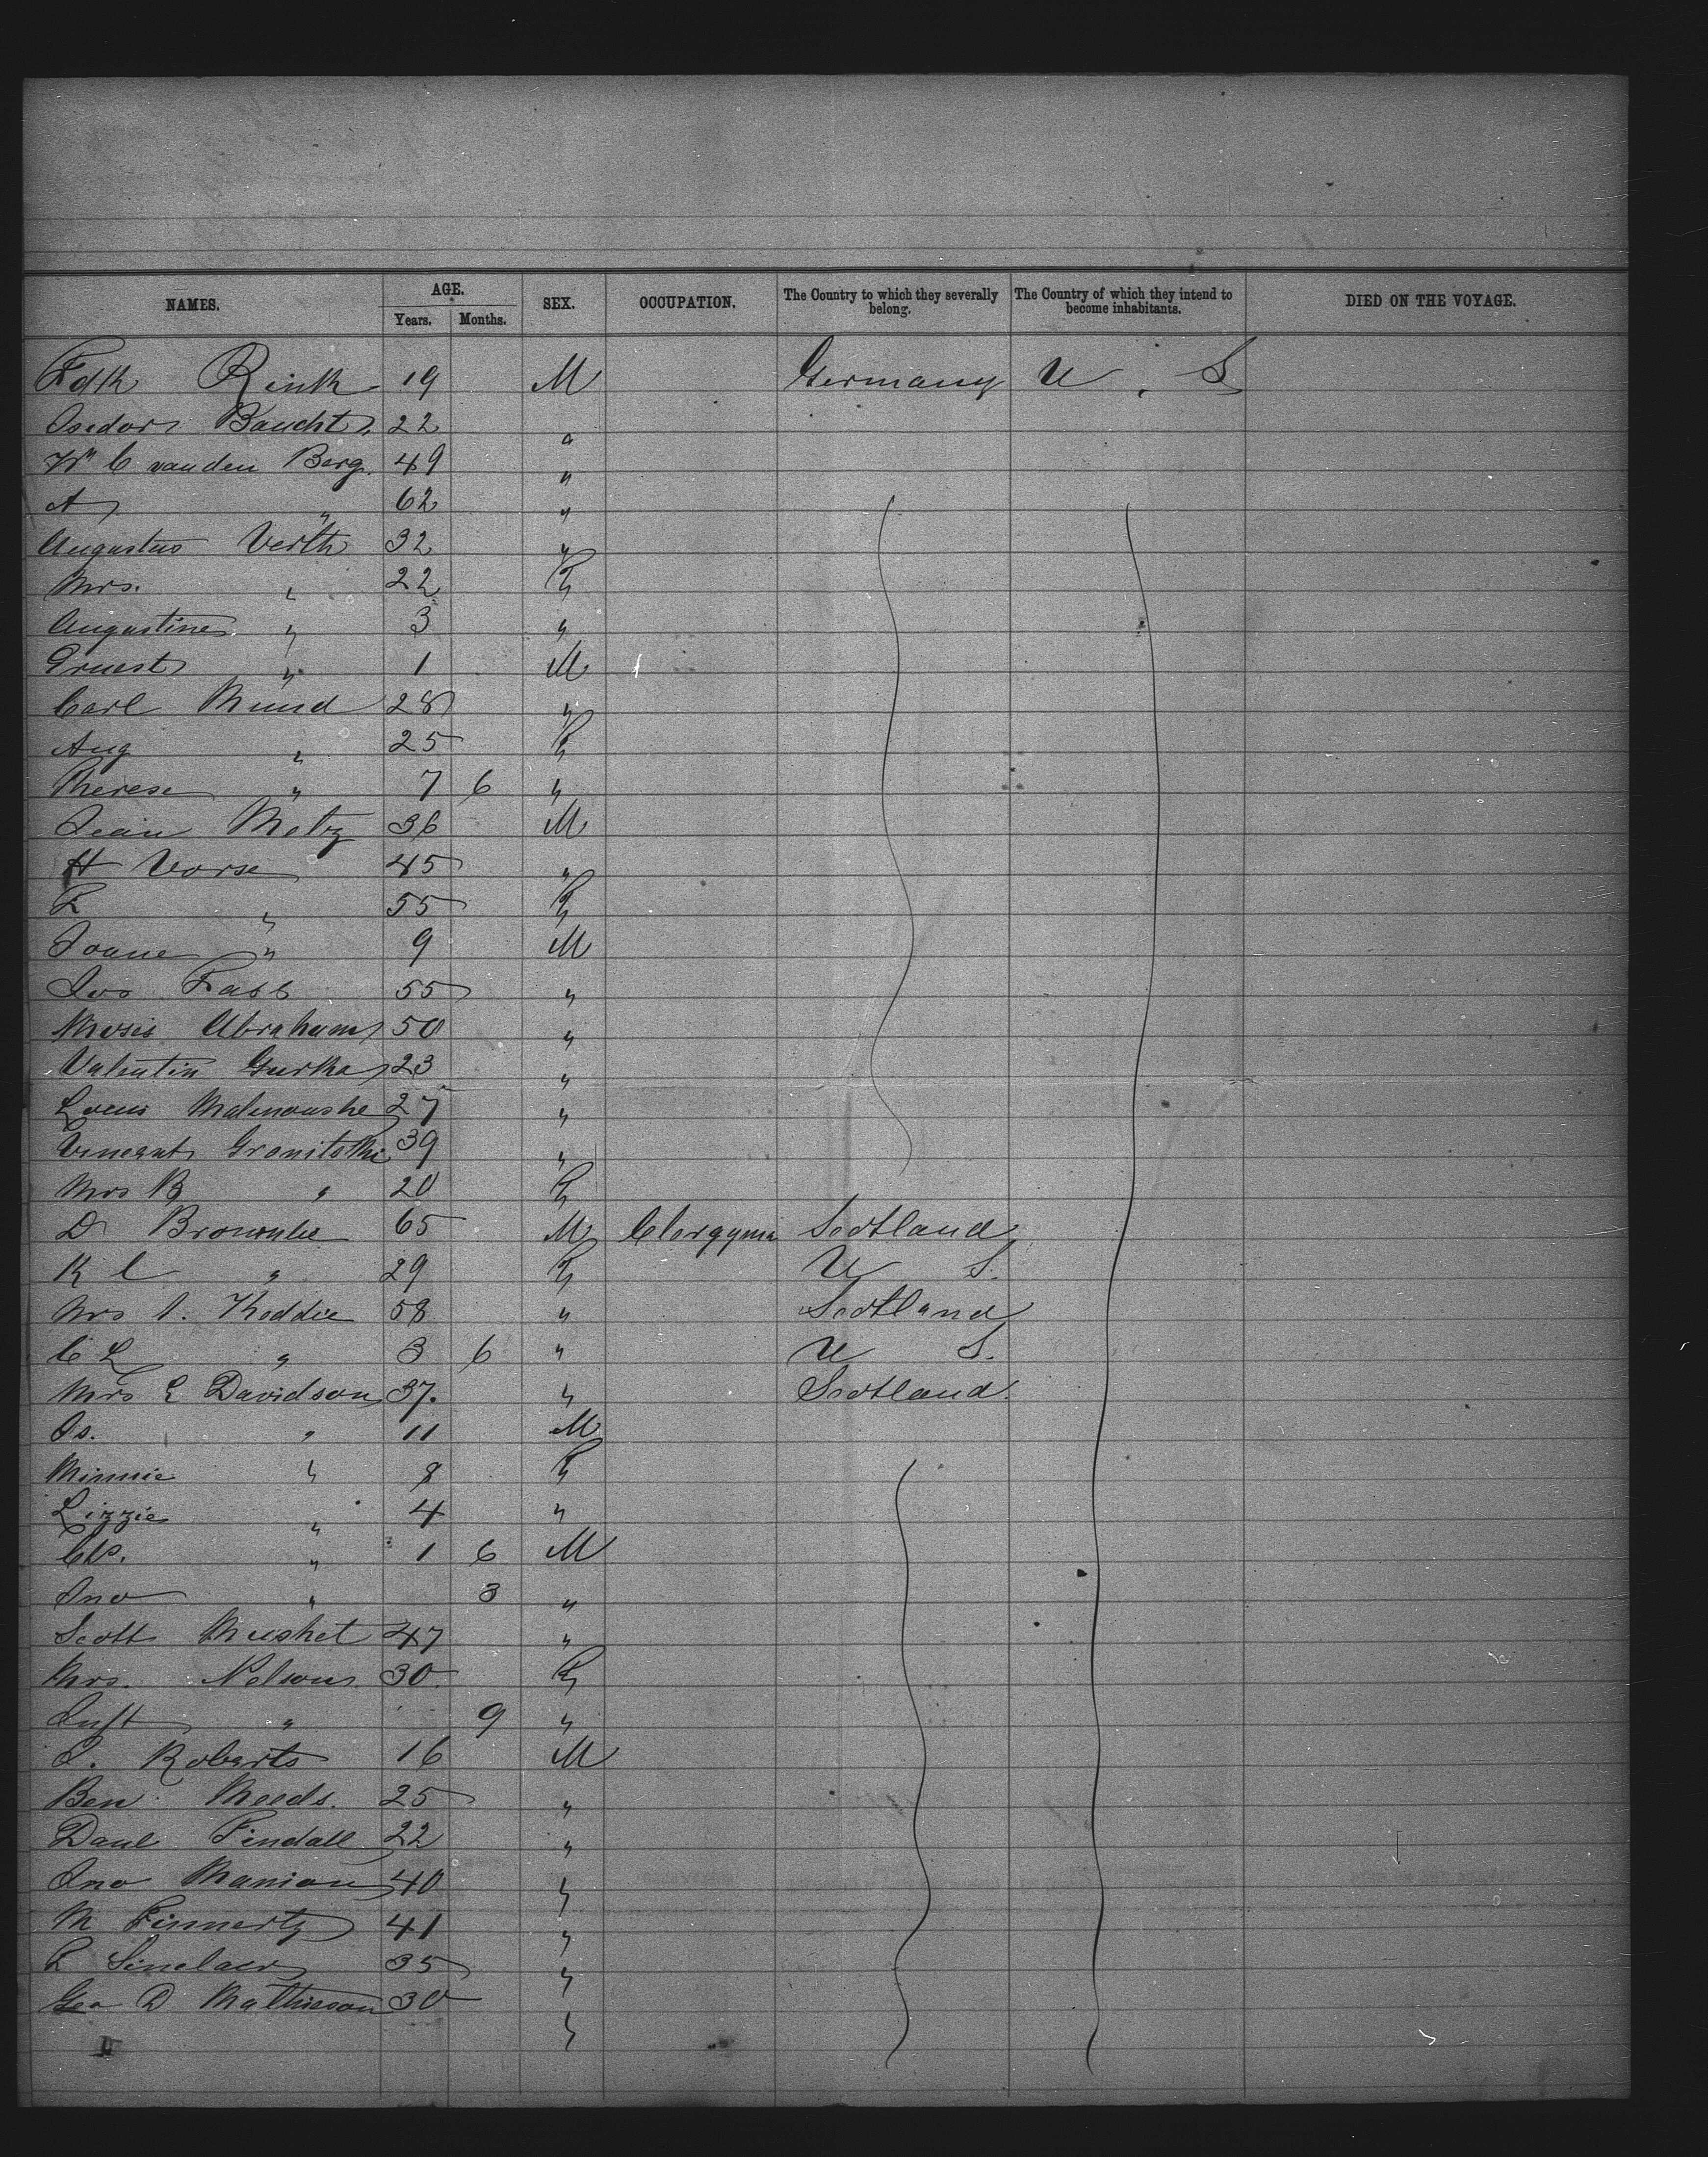 NAMES. AGE. SEX. OCCUPATION. The Country to which they severally belong. The Country of which they intend to become inhabitants. DIED ON THE VOYAGE.
Years. Months.
Fdk Rink 19 M Germany U. S
Isedor Baucht 22 "
Wm C van den Berg 49 "
A " 62 "
Augustus Verth 32 "
Mrs. " 22 F
Augustines " 3 "
Ernest " 1 M
Carl Mund 28 "
Aug " 25 F
Therese " 7 6 "
Jean Metz 36 M
H Vorse 45 "
F " 55 F
" 9 M
Fass 55 "
Moses Abraham 50 "
Valentin Gurka 23 "
27 "
39 "
Mrs B " 20 F
D Brownlie 65 M Clergyma Scotland
K C " 29 F U S.
Mrs Keddie 58 " Scotland
C L " 3 6 " U S.
Mrs E Davidson 37. " Scotland
Js. " 11 M
Minnie " 8 F
Lizzie " 4 "
Chs. " 1 6 M
Jno " 3 "
Scott Mushet 47 "
Mrs. Nelson 30 F
Inft " 9 "
J. Roberts 16 M
Ben Meeds. 25 "
Danl Tindall 22 "
Jno Manion 40 "
M Finnerty 41 "
F Sinclair 35 "
Geo D Mathieson 30 "